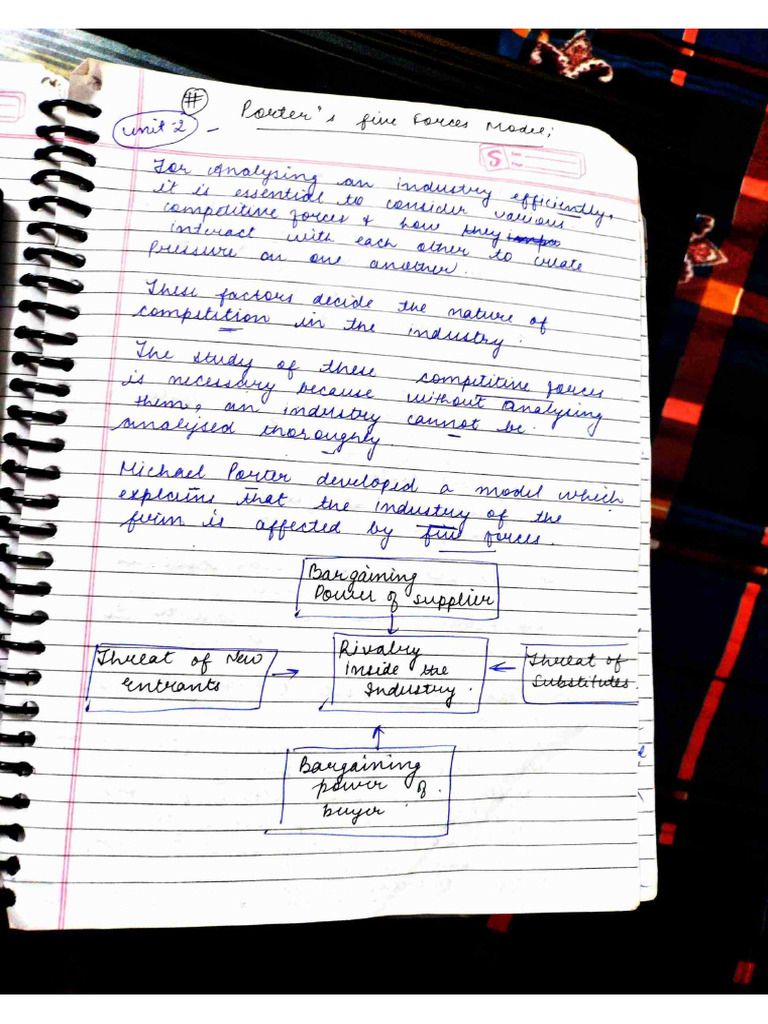 #
Porter's five Forces Model;
Unit-2 -
S
For Analysing an industry efficiently,
it is essential to consider various
competitive forces & how they
interact with each other to create
pressure on one another.
These factors decide the nature of
competition in the industry.
The study of these competitive forces
is necessary because without analysing
them, an industry cannot be.
analysed thoroughly.
Michael Porter developed a model which
explains that the industry of the
firm is affected by five forces.
Bargaining
Power of supplier
Threat of New
entrants
Rivalry
inside the
Industry.
Threat of
Substitutes.
Bargaining
power of.
buyer